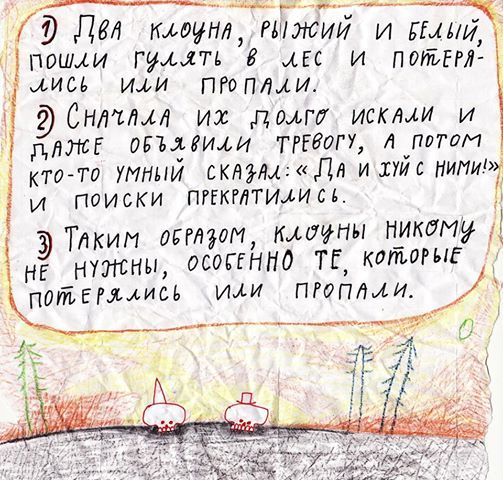 1) Два клоуна, рыжий и белый,
пошли гулять в лес и потеря-
лись или пропали.
2) Сначала их долго искали и
даже объявили тревогу, а потом
кто-то умный сказал: «Да и хуй с ними!»
и поиски прекратились.
3) Таким образом, клоуны никому
не нужны, особенно те, которые
потерялись или пропали.